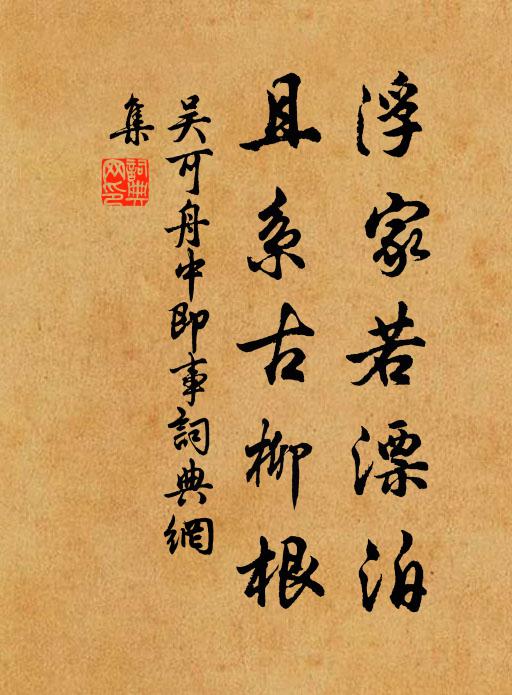 浮家若漂泊
且系古柳根
吴可舟中即事詞典網
集
詞典
网印